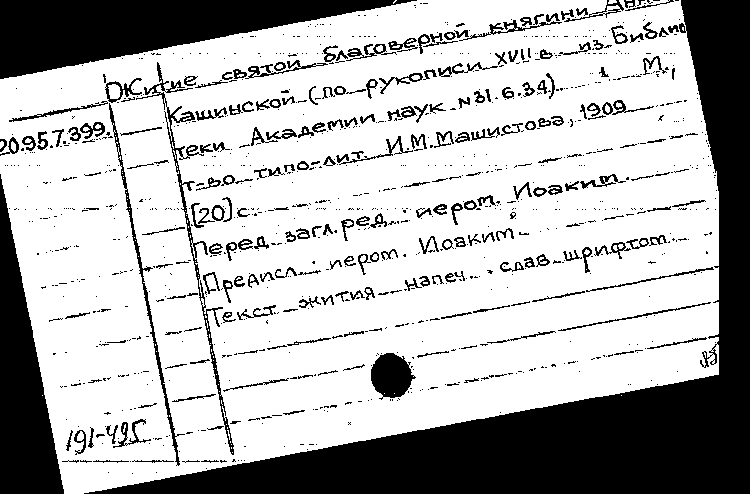 Житие святой благоверной княгини Анн
Кашинской (по рукописи XVII в из Библио
20.95.7.399.
теки Академии наук №31.6.34). М.,
т-во типо-лит И.М.Машистова, 1909
[20] с.
Перед загл.ред : иером. Иоаким.
Предисл : иером. Иоаким.
Текст жития напеч. слав. шрифтом.
191-495